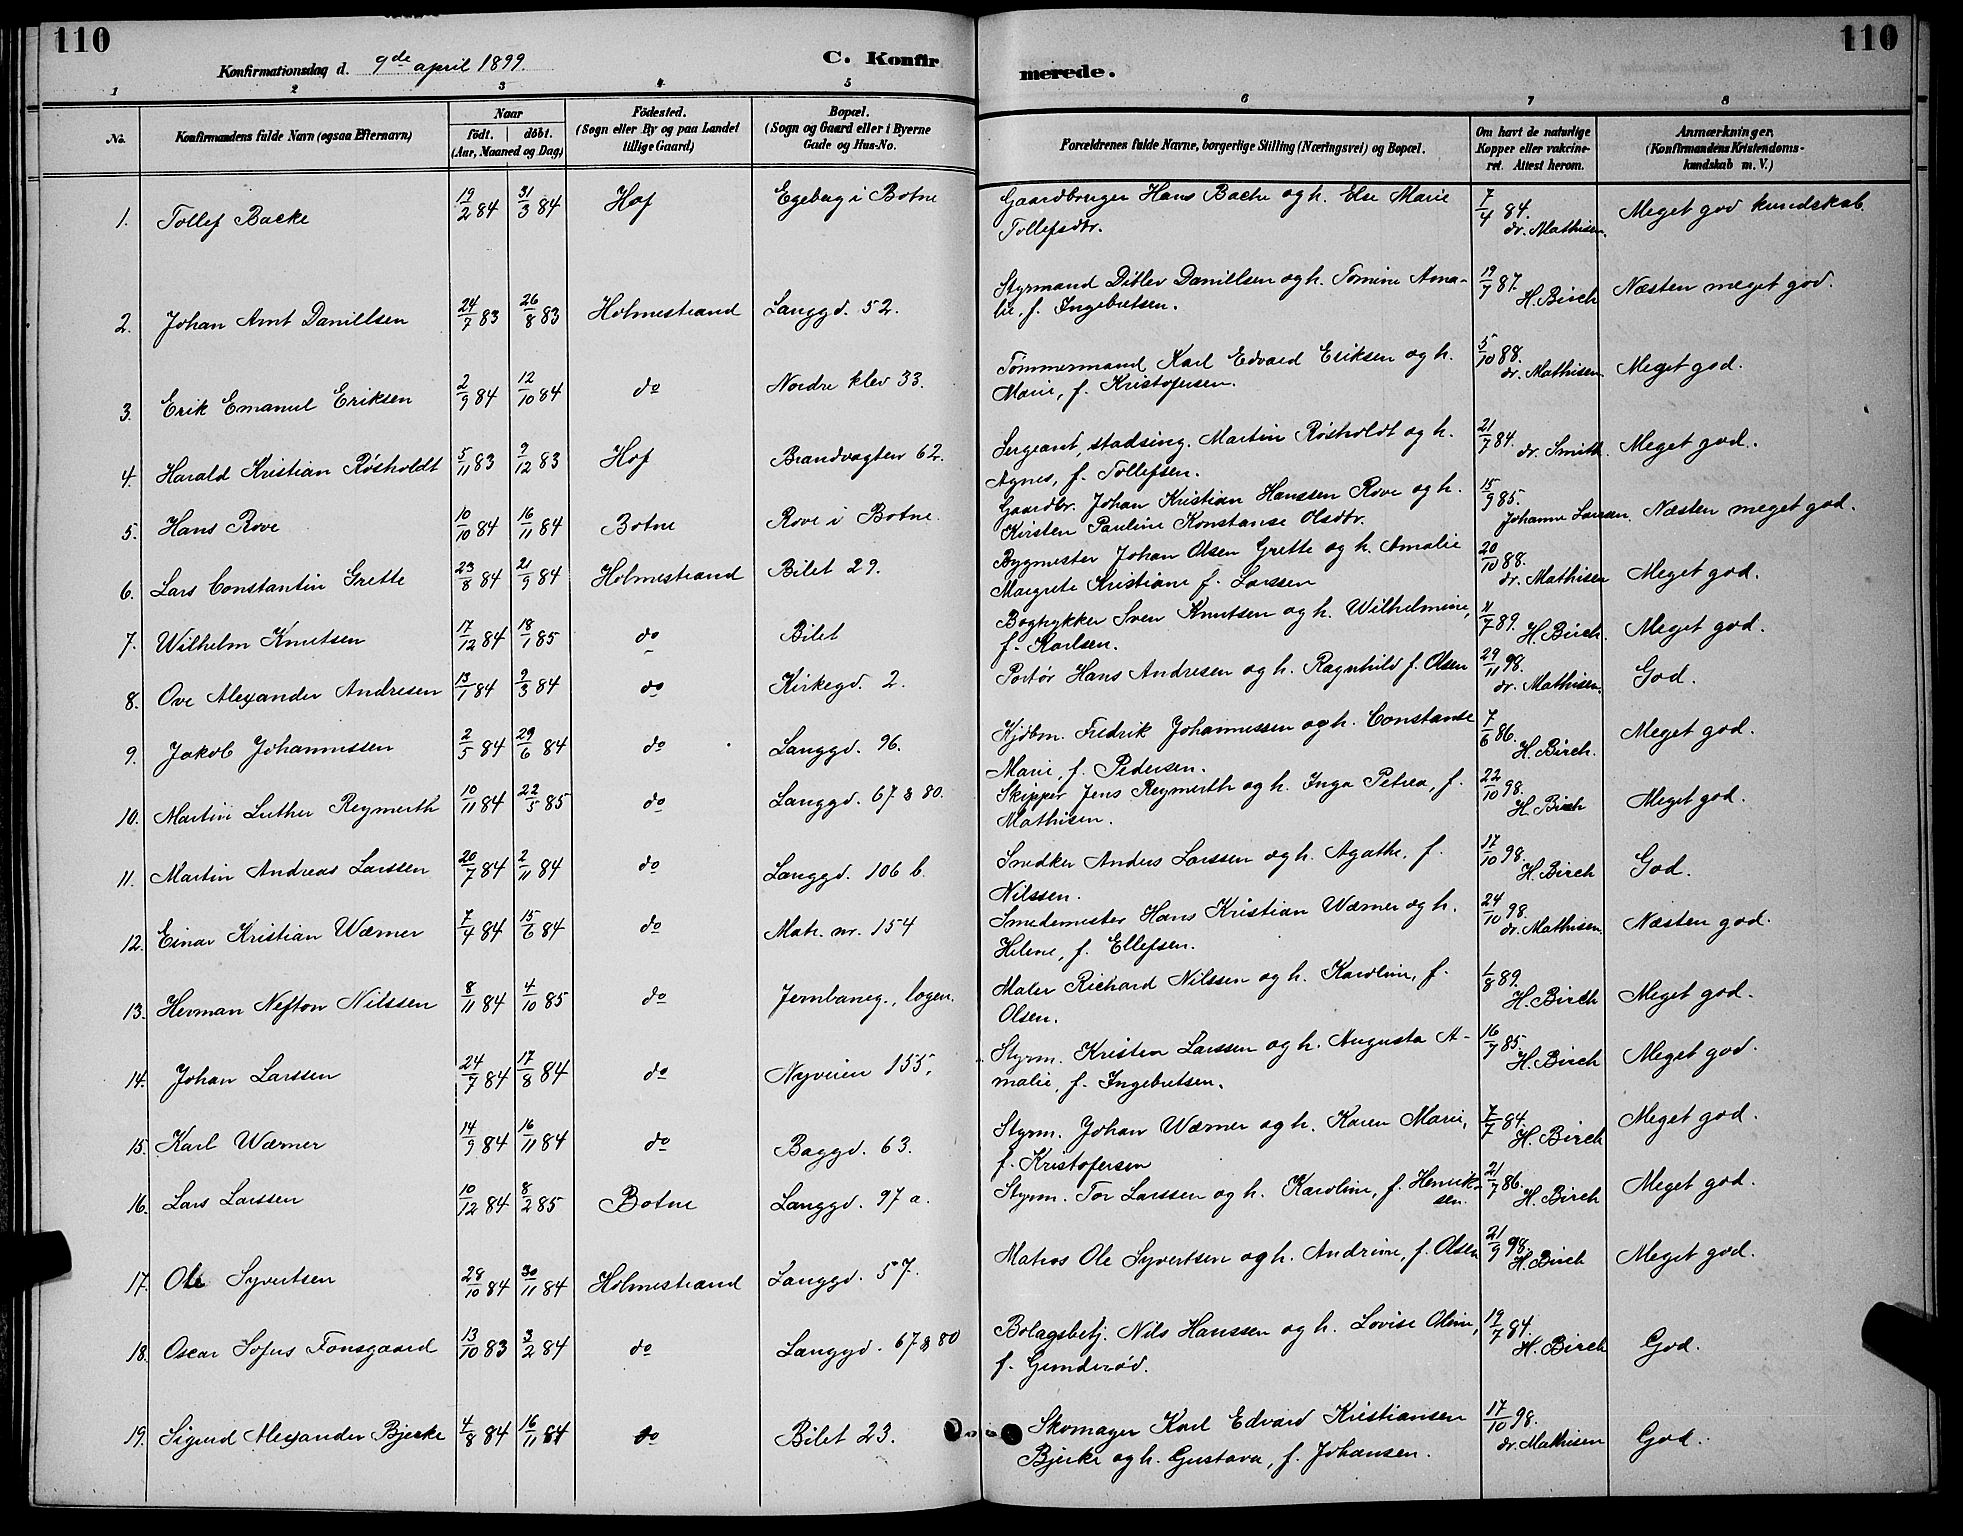 110
Konfirmationsdag d. 9de april 1899.
C. Konfirmerede.
110
1 2 3 4 5 6 7 8
No. | Konfirmandens fulde Navn (ogsaa Efternavn) | Naar födt. | döbt. (Aar, Maaned og Dag) | Födested. (Sogn eller By og paa Landet tillige Gaard) | Bopæl. (Sogn og Gaard eller i Byerne Gade og Hus-No. | Forældrenes fulde Navne, borgerlige Stilling (Næringsvei) og Bopæl. | Om havt de naturlige Kopper eller vakcineret. Attest herom. | Anmærkninger. (Konfirmandens Kristendomskundskab m. V.)
1. Tollef Backe 19/2 84 31/3 84 Hof Egebæg i Botne Gaardbruger Hans Backe og h. Else Marie Tollefsdtr. 7/4 84. dr. Mathisen. Meget god kundskab.
2. Johan Arnt Daniilsen 24/7 83 26/8 83 Holmestrand Langgd. 52. Styrmand Ditlev Daniilsen og h. Tomine Amalie, f. Ingebretsen. 19/7 87. H. Birch Næsten meget god.
3. Erik Emanuel Eriksen 2/9 84 12/10 84 do Nordre klev 33. Tømmermand Karl Edvard Eriksen og h. Marie, f. Kristofersen. 5/10 88. dr. Mathisen Meget god.
4. Harald Kristian Røsholdt 5/11 83 9/12 83 Hof Brandvagten 62. Sergeant, stadsing. Martin Røsholdt og h. Agnes, f. Tollefsen. 21/7 84. dr. Smith. Meget god.
5. Hans Rove 10/10 84 16/11 84 Botne Rove i Botne. Gaardbr. Johan Kristian Hanssen Rove og h. Kirsten Pauline Konstanse Olsdtr. 15/9 85. Johanne Larsen. Næsten meget god.
6. Lars Constantin Grette 23/8 84 21/9 84 Holmestrand Bilet 29. Bygmester Johan Olsen Grette og h. Amalie Margrete Kristiane f. Larssen 20/10 88. dr. Mathisen Meget god.
7. Wilhelm Knutsen 17/12 84 18/1 85 do Bilet Bogtrykker Sven Knutsen og h. Wilhelmine, f. Karlsen. 11/7 89. H. Birch. Meget god.
8. Ove Alexander Andresen 13/1 84 9/3 84 do Kirkegd. 2. Portør Hans Andresen og h. Ragnhild f. Olsen 29/11 98. dr. Mathisen. God.
9. Jakob Johannessen 2/5 84 29/6 84 do Langgd. 96. Kjøbm. Fredrik Johannessen og h. Constanse Marie, f. Pedersen. 7/6 86. H. Birch. Meget god.
10. Martin Luther Reymerth 10/11 84 22/5 85 do Langgd. 67 & 80. Skipper Jens Reymerth og h. Inga Petrea, f. Mathisen. 22/10 98. H. Birch Meget god.
11. Martin Andreas Larssen 20/7 84 2/11 84 do Langgd. 106 b. Snedker Anders Larssen og h. Agathe, f. Nilssen. 17/10 98. H. Birch God.
12. Einar Kristian Wærner 7/4 84 15/6 84 do Matr. nr. 154 Smedemester Hans Kristian Wærner og h. Helene, f. Ellefsen. 24/10 98. dr. Mathisen. Næsten god.
13. Herman Nefton Nilssen 8/11 84 4/10 85 do Jernbaneg., logen. Maler Richard Nilssen og h. Karoline, f. Olsen. 1/8 89. H. Birch Meget god.
14. Johan Larssen 24/7 84 17/8 84 do Nyveien 155. Styrm. Kristen Larssen og h. Augusta Amalie, f. Ingebretsen. 16/7 85. H. Birch Meget god.
15. Karl Wærner 14/9 84 16/11 84 do Baggd. 63. Styrm. Johan Wærner og h. Karen Marie, f. Kristofersen 7/7 84. H. Birch Meget god.
16. Lars Larssen 10/12 84 8/2 85 Botne Langgd. 97 a. Styrm. Tor Larssen og h. Karoline, f. Henriksen. 21/7 86. H. Birch Meget god.
17. Ole Syvertsen 28/10 84 30/11 84 Holmestrand Langgd. 57. Matros Ole Syvertsen og h. Andrine, f. Olsen 21/9 98. H. Birch Meget god.
18. Oscar Sofus Fonsgaard 13/10 83 3/2 84 do Langgd. 67 & 80 Bolagsbetj. Nils Hanssen og h. Lovise Oline, f. Gunderød. 19/7 84. H. Birch God.
19. Sigurd Alexander Bjerke 4/8 84 16/11 84 do Bilet 23. Skomager Karl Edvard Kristiansen Bjerke og h. Gustava, f. Johansen. 17/10 98. dr. Mathisen God.